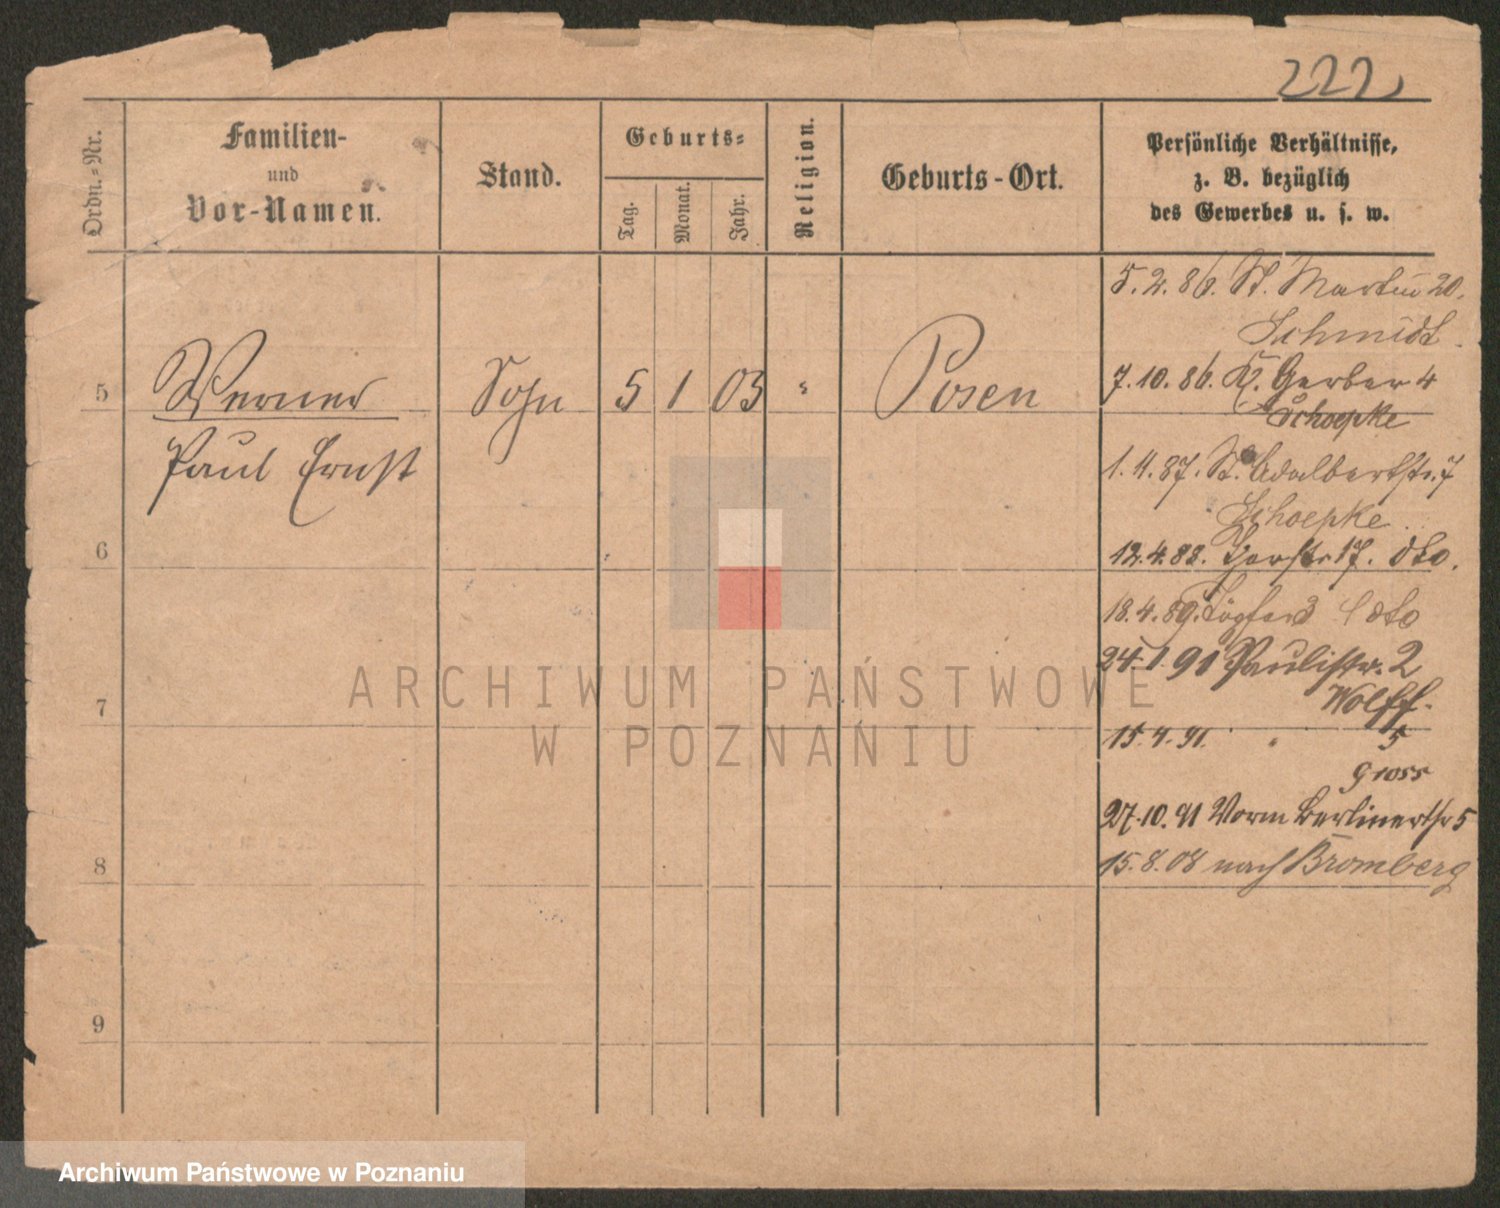 222
Ordn.-Nr.
Familien-
und
Vor-Namen.
Stand.
Geburts-
Tag.
Monat.
Jahr.
Religion.
Geburts-Ort.
Persönliche Verhältnisse,
z. B. bezüglich
des Gewerbes u. s. w.
5 Werner Sohn 5 1 03 " Posen
Paul Ernst
6
7
8
9
5.2.86. St. Martin 20.
Schmidt.
7.10.86. Kl. Gerber 4
Schoepke
1.4.87. St. Adalbertstr. 7
Schoepke
12.4.88. 17. dto.
18.4.89. Töpfer 3 dto
24.1.91 Paulistr. 2
Wolff.
15.4.91. " 5
Gross
27.10.91 Vorm Berlinerthr 5
15.8.08 nach Bromberg
ARCHIWUM PAŃSTWOWE
W POZNANIU
Archiwum Państwowe w Poznaniu